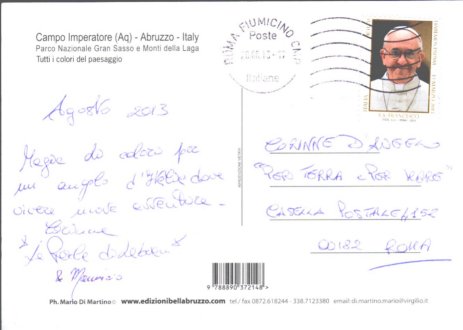 Campo Imperatore (Aq) - Abruzzo - Italy
Parco Nazionale Gran Sasso e Monti della Laga
Tutti i colori del paesaggio
ROMA FIUMICINO
Poste
Italiane
ITALIA
Agosto 2013
Magia di colori per
un angolo d'Italia dove
vivere nuove
Corinne
"Le Perle di
&
CORINNE D'ANGELO
"PER TERRA e PER MARE"
CASELLA POSTALE 4152
00182 ROMA
9 788890 372148
Ph. Mario Di Martino © www.edizionibellabruzzo.com tel / fax 0872.618244 - 338.7123380 email: di.martino.mario@virgilio.it